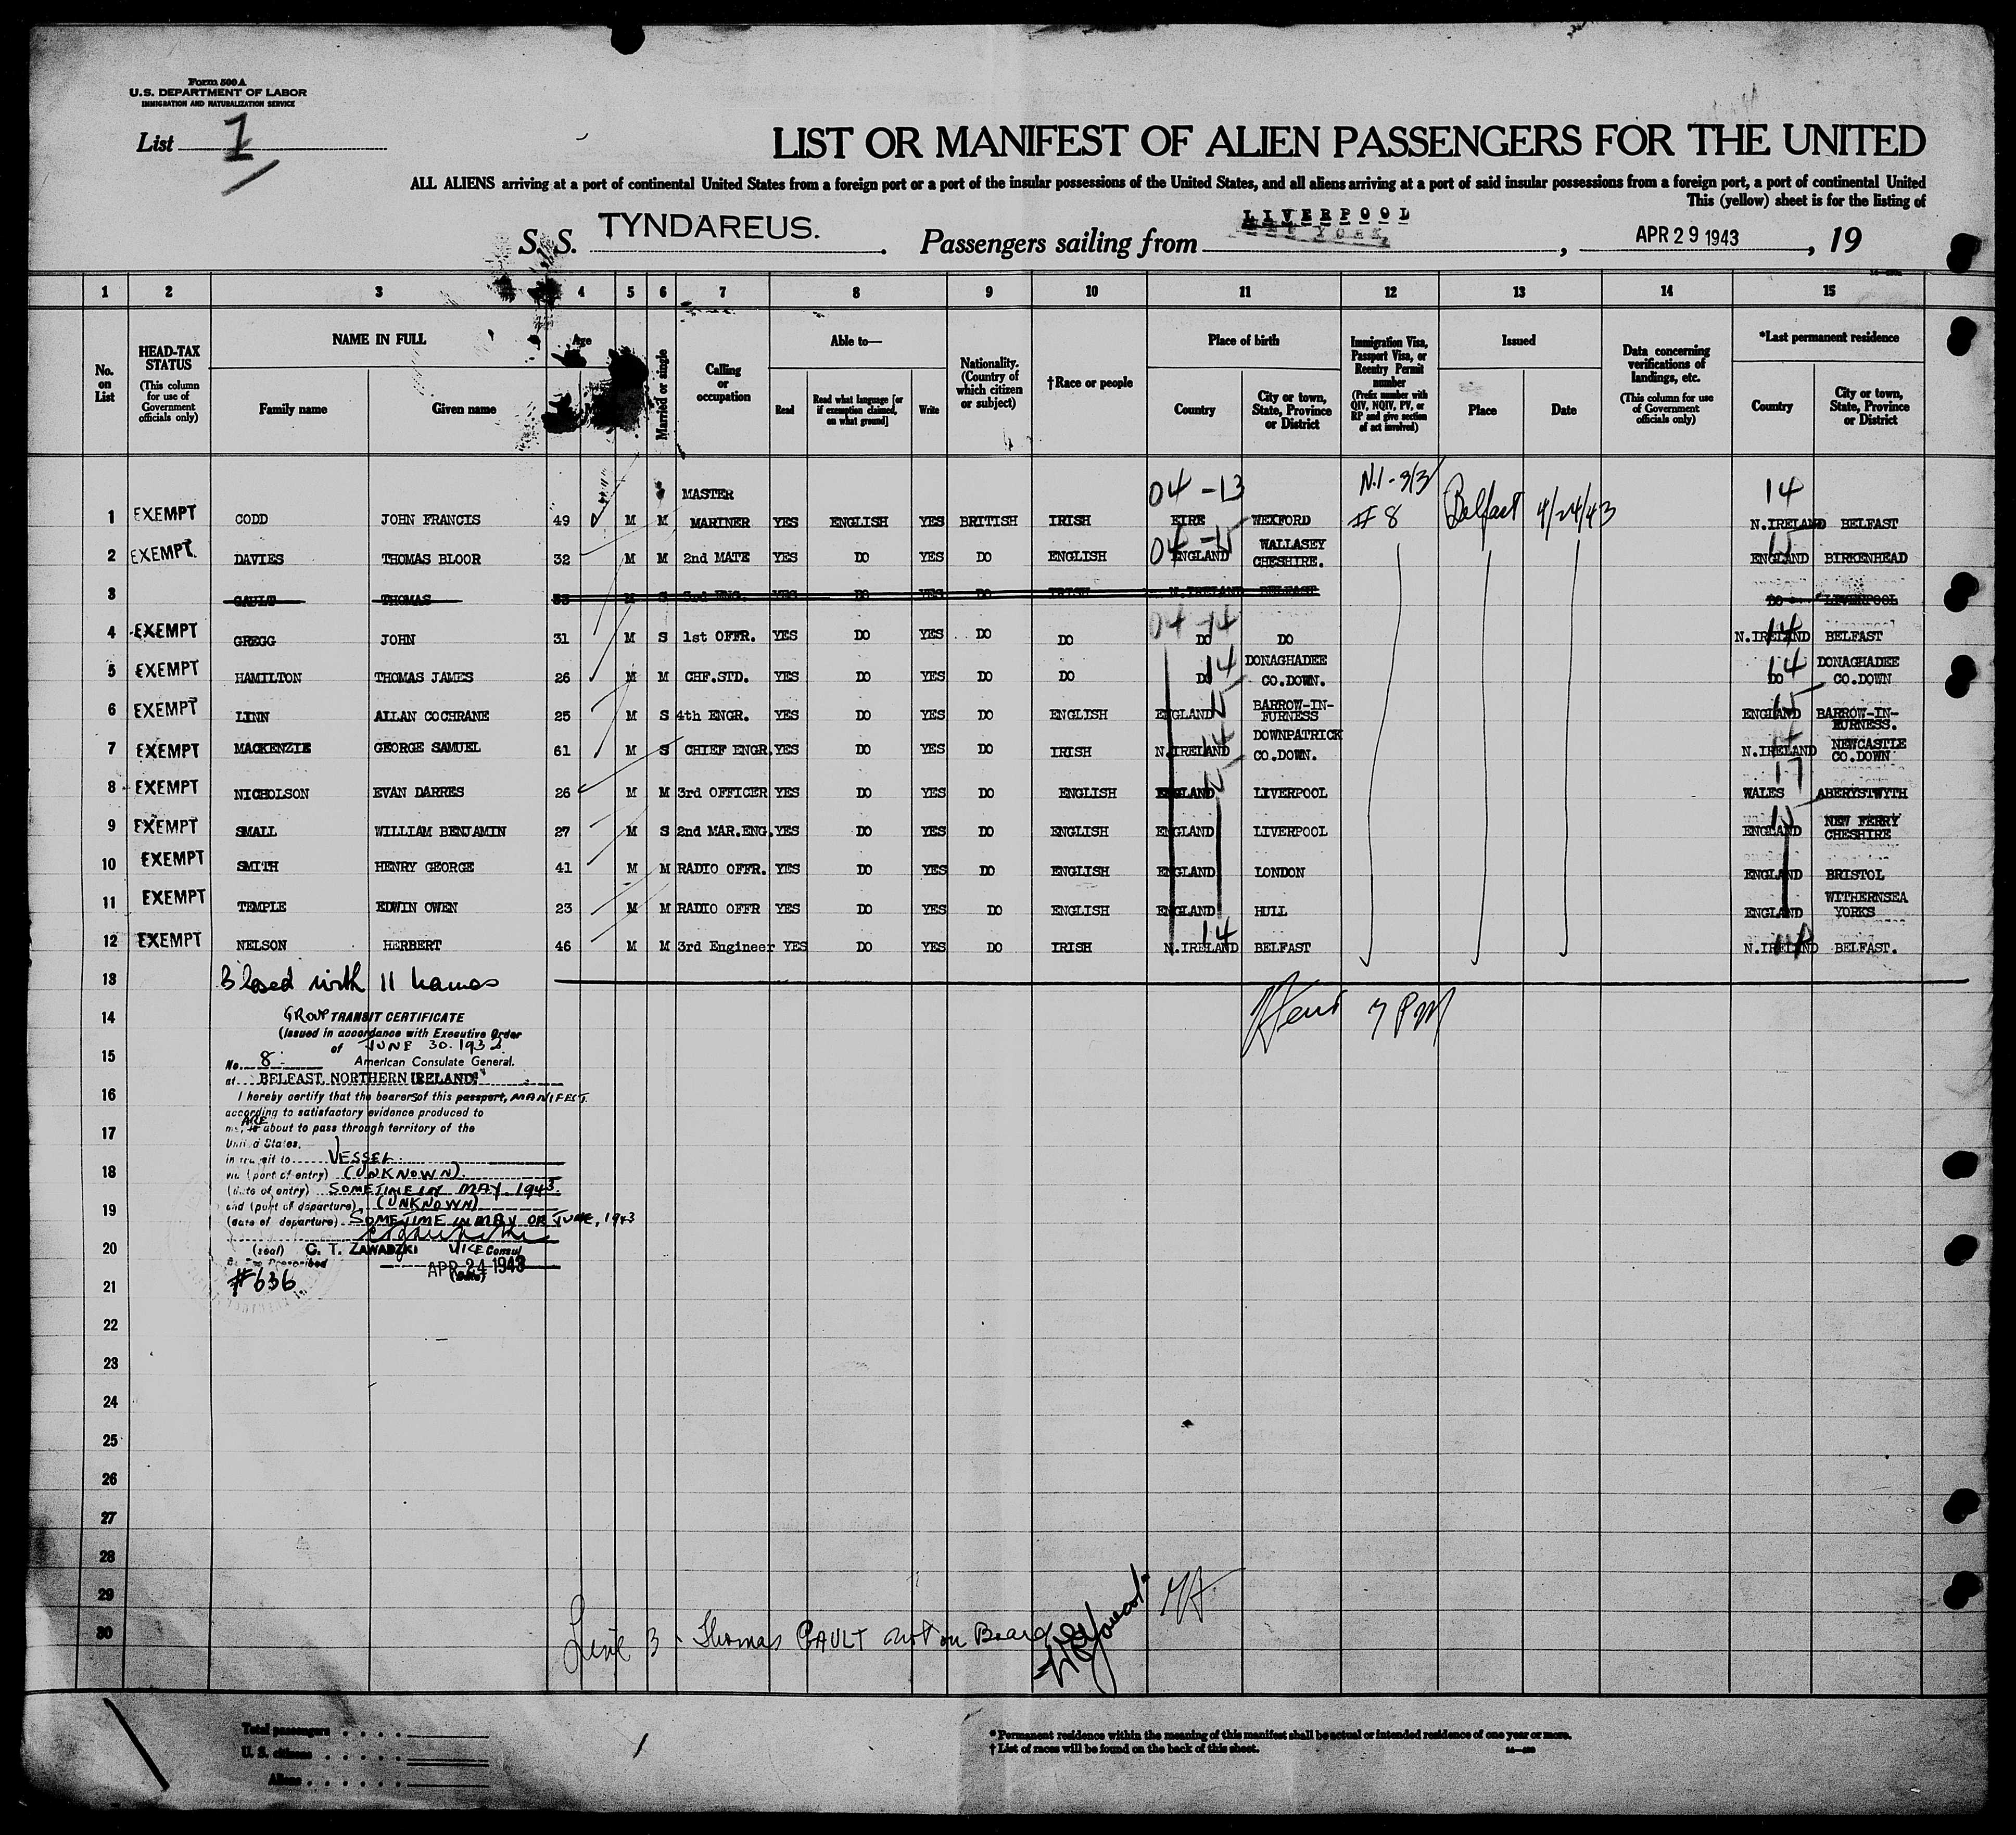 Form 500 A
U.S. DEPARTMENT OF LABOR
IMMIGRATION AND NATURALIZATION SERVICE
List 1
LIST OR MANIFEST OF ALIEN PASSENGERS FOR THE UNITED
ALL ALIENS arriving at a port of continental United States from a foreign port or a port of the insular possessions of the United States, and all aliens arriving at a port of said insular possessions from a foreign port, a port of continental United
This (yellow) sheet is for the listing of
S. S. TYNDAREUS. Passengers sailing from LIVERPOOL NEW YORK, APR 29 1943, 19
1 2 3 4 5 6 7 8 9 10 11 12 13 14 15
No. on List
HEAD-TAX STATUS (This column for use of Government officials only)
NAME IN FULL
Family name Given name
Age
Married or single
Calling or occupation
Able to—
Read Read what language [or if exemption claimed, on what ground] Write
Nationality. (Country of which citizen or subject)
†Race or people
Place of birth
Country City or town, State, Province or District
Immigration Visa, Passport Visa, or Reentry Permit number (Prefix number with QIV, NQIV, PV, or RP and give section of act involved)
Issued
Place Date
Data concerning verifications of landings, etc. (This column for use of Government officials only)
*Last permanent residence
Country City or town, State, Province or District
1 EXEMPT CODD JOHN FRANCIS 49 M M MASTER MARINER YES ENGLISH YES BRITISH IRISH 04-13 EIRE WEXFORD N.1-3/3 #8 Belfast 4/24/43 14 N.IRELAND BELFAST
2 EXEMPT. DAVIES THOMAS BLOOR 32 M M 2nd MATE YES DO YES DO ENGLISH 04-15 ENGLAND WALLASEY CHESHIRE. 15 ENGLAND BIRKENHEAD
3 GAULT THOMAS 33 M S 3rd ENG. YES DO YES DO IRISH N.IRELAND BELFAST DO LIVERPOOL
4 EXEMPT GREGG JOHN 31 M S 1st OFFR. YES DO YES DO DO 04 14 DO DO 14 N.IRELAND BELFAST
5 EXEMPT HAMILTON THOMAS JAMES 26 M M CHF.STD. YES DO YES DO DO 14 DO DONAGHADEE CO.DOWN. 14 DO DONAGHADEE CO.DOWN
6 EXEMPT LINN ALLAN COCHRANE 25 M S 4th ENGR. YES DO YES DO ENGLISH 15 ENGLAND BARROW-IN-FURNESS 15 ENGLAND BARROW-IN-FURNESS.
7 EXEMPT MACKENZIE GEORGE SAMUEL 61 M S CHIEF ENGR. YES DO YES DO IRISH 14 N.IRELAND DOWNPATRICK CO.DOWN. 14 N.IRELAND NEWCASTLE CO.DOWN
8 EXEMPT NICHOLSON EVAN DARRES 26 M M 3rd OFFICER YES DO YES DO ENGLISH 15 ENGLAND LIVERPOOL 17 WALES ABERYSTWYTH
9 EXEMPT SMALL WILLIAM BENJAMIN 27 M S 2nd MAR.ENG. YES DO YES DO ENGLISH ENGLAND LIVERPOOL 15 ENGLAND NEW FERRY CHESHIRE
10 EXEMPT SMITH HENRY GEORGE 41 M M RADIO OFFR. YES DO YES DO ENGLISH ENGLAND LONDON ENGLAND BRISTOL
11 EXEMPT TEMPLE EDWIN OWEN 23 M M RADIO OFFR YES DO YES DO ENGLISH ENGLAND HULL ENGLAND WITHERNSEA YORKS
12 EXEMPT NELSON HERBERT 46 M M 3rd Engineer YES DO YES DO IRISH 14 N.IRELAND BELFAST 14 N.IRELAND BELFAST.
13 Closed with 11 names
14 GROUP TRANSIT CERTIFICATE 7 PM
(Issued in accordance with Executive Order
of JUNE 30. 1932
15 No. 8 American Consulate General.
at BELFAST, NORTHERN IRELAND.
16 I hereby certify that the bearers of this passport, MANIFEST
according to satisfactory evidence produced to
17 me, is ARE about to pass through territory of the
United States,
in transit to VESSEL.
18 via (port of entry) (UNKNOWN).
(date of entry) SOMETIME IN MAY 1943.
19 and (port of departure) (UNKNOWN)
(date of departure) SOMETIME IN MAY OR JUNE, 1943
20 (seal) C. T. ZAWADZKI VICE Consul
Prescribed APR 24 1943
(Date)
21 #636
22
23
24
25
26
27
28
29
30 Line 3 - Thomas GAULT not on Board
Total passengers
U. S. citizens
Aliens
*Permanent residence within the meaning of this manifest shall be actual or intended residence of one year or more.
†List of races will be found on the back of this sheet.